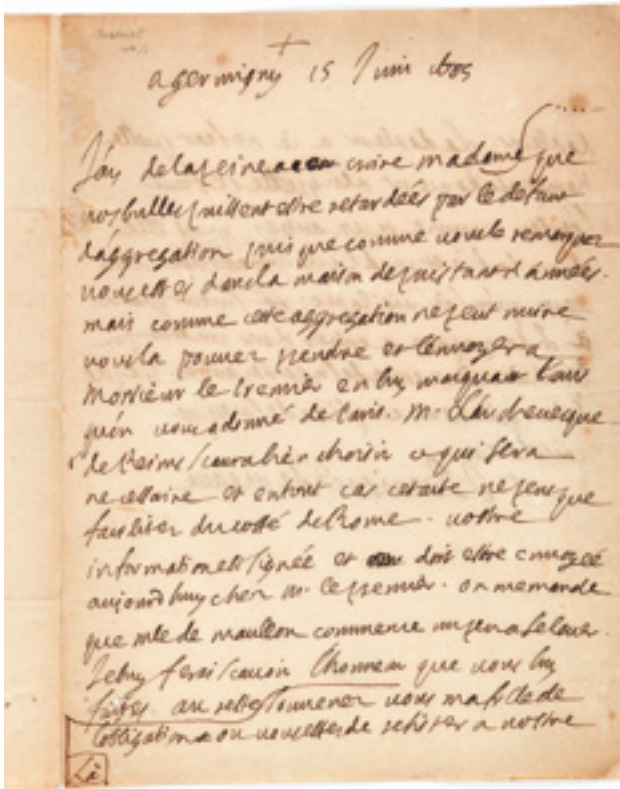 a germigny 15 Juin 1685
J'ay de la peine a croire madame que
vos bulles puissent estre retardées par le defaut
d'aggregation puis que comme vous le remarquez
vous estes dans la maison depuis tant d'années.
mais comme cette aggregation ne peut nuire
vous la pouvez prendre et l'envoyer a
Monsieur le premier en luy marquant l'avis
qu'on vous a donné de Paris. M. L'Archevesque
de Reims scaura bien choisir ce qui sera
necessaire et en tout cas cet acte ne peut que
faciliter du costé de Rome. vostre
information est signée et doit estre envoyée
aujourd'huy chez M. le premier. on me mande
que mlle de mauleon commence un peu a se lever.
Je luy ferai scavoir l'honneur que vous luy
faites. au reste souvenez vous ma fille de
l'obligation ou vous estes de resister a vostre